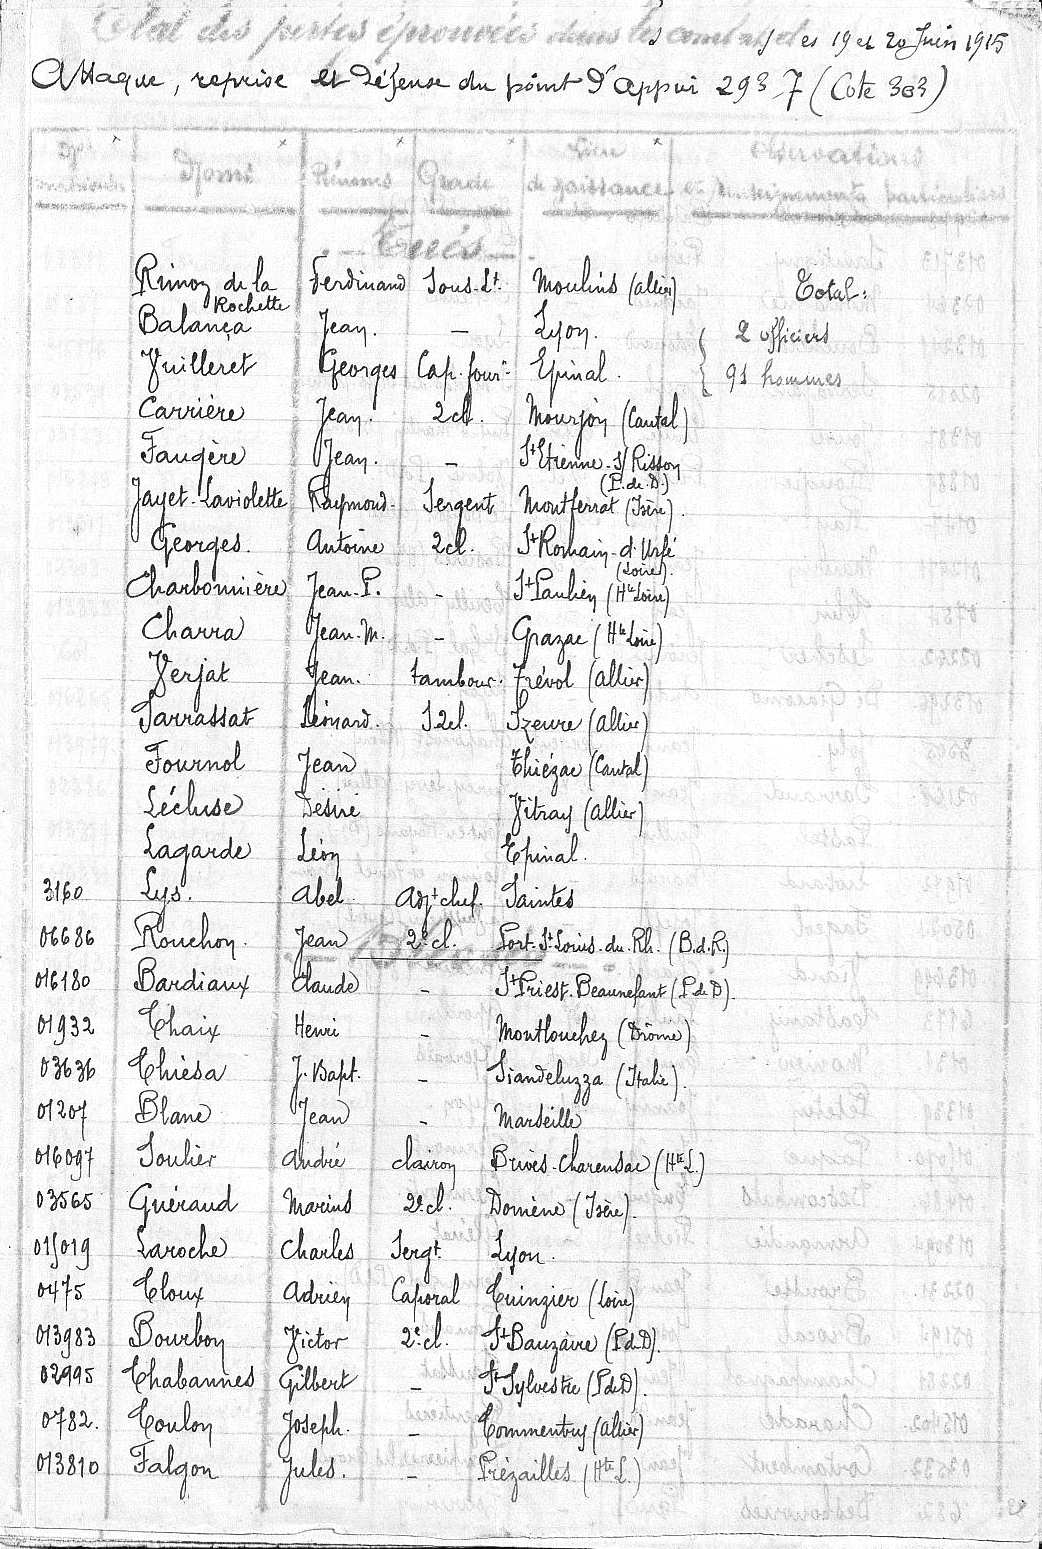 Etat des pertes éprouvées dans les combats des 19 et 20 Juin 1915
Attaque, reprise et défense du point d'appui 293 7 (Cote 303)
Nos matricule Noms Prénoms Grade Lieu de naissance Observations et renseignements particuliers
Tués
Rimoz de la Rochette Ferdinand Sous-Lt. Moulins (Allier) Total:
Balança Jean. — Lyon. 2 officiers
Vuilleret Georges Cap. four. Epinal. 91 hommes
Carrière Jean. 2cl. Mourjon (Cantal)
Faugère Jean. — St Etienne-s/ Risson (P. de D.)
Jayet-Laviolette Raymond. Sergent Montferrat (Isère).
Georges. Antoine 2cl. St Romain-d'Urfé (Loire).
Charbonnière Jean-P. - St Paulien (Hte Loire)
Charra Jean-M. - Grazac (Hte Loire)
Verjat Jean. tambour. Trévol (Allier)
Sarrassat Léonard. S2cl. Izeure (Allier)
Fournol Jean Thiézac (Cantal)
Lécluse Désiré Vitray (Allier)
Lagarde Léon Epinal.
3160 Lys. Abel. Adjt chef. Saintes
06686 Rouchon. Jean 2e cl. Port-St Louis-du-Rh. (B.d.R)
016180 Bardiaux Claude - St Priest-Beaunefant (P de D).
01932 Chaix Henri - Montlouchez (Drôme)
03636 Chièsa J. Bapt. - Siandeluzza (Italie).
01207 Blanc Jean - Marseille
016097 Soulier André clairon Brives-Charensac (Hte L.)
03565 Guéraud Marius 2e cl. Domène (Isère).
015019 Laroche Charles Sergt. Lyon.
0475 Cloux Adrien Caporal Cuinzier (Loire)
013983 Bourbon Victor 2e cl. St Bauzaire (P de D).
02995 Chabannes Gilbert - St Sylvestre (P de D).
0782. Coulon Joseph. - Commentry (Allier)
013810 Falgon Jules. - Prézailles (Hte L.)